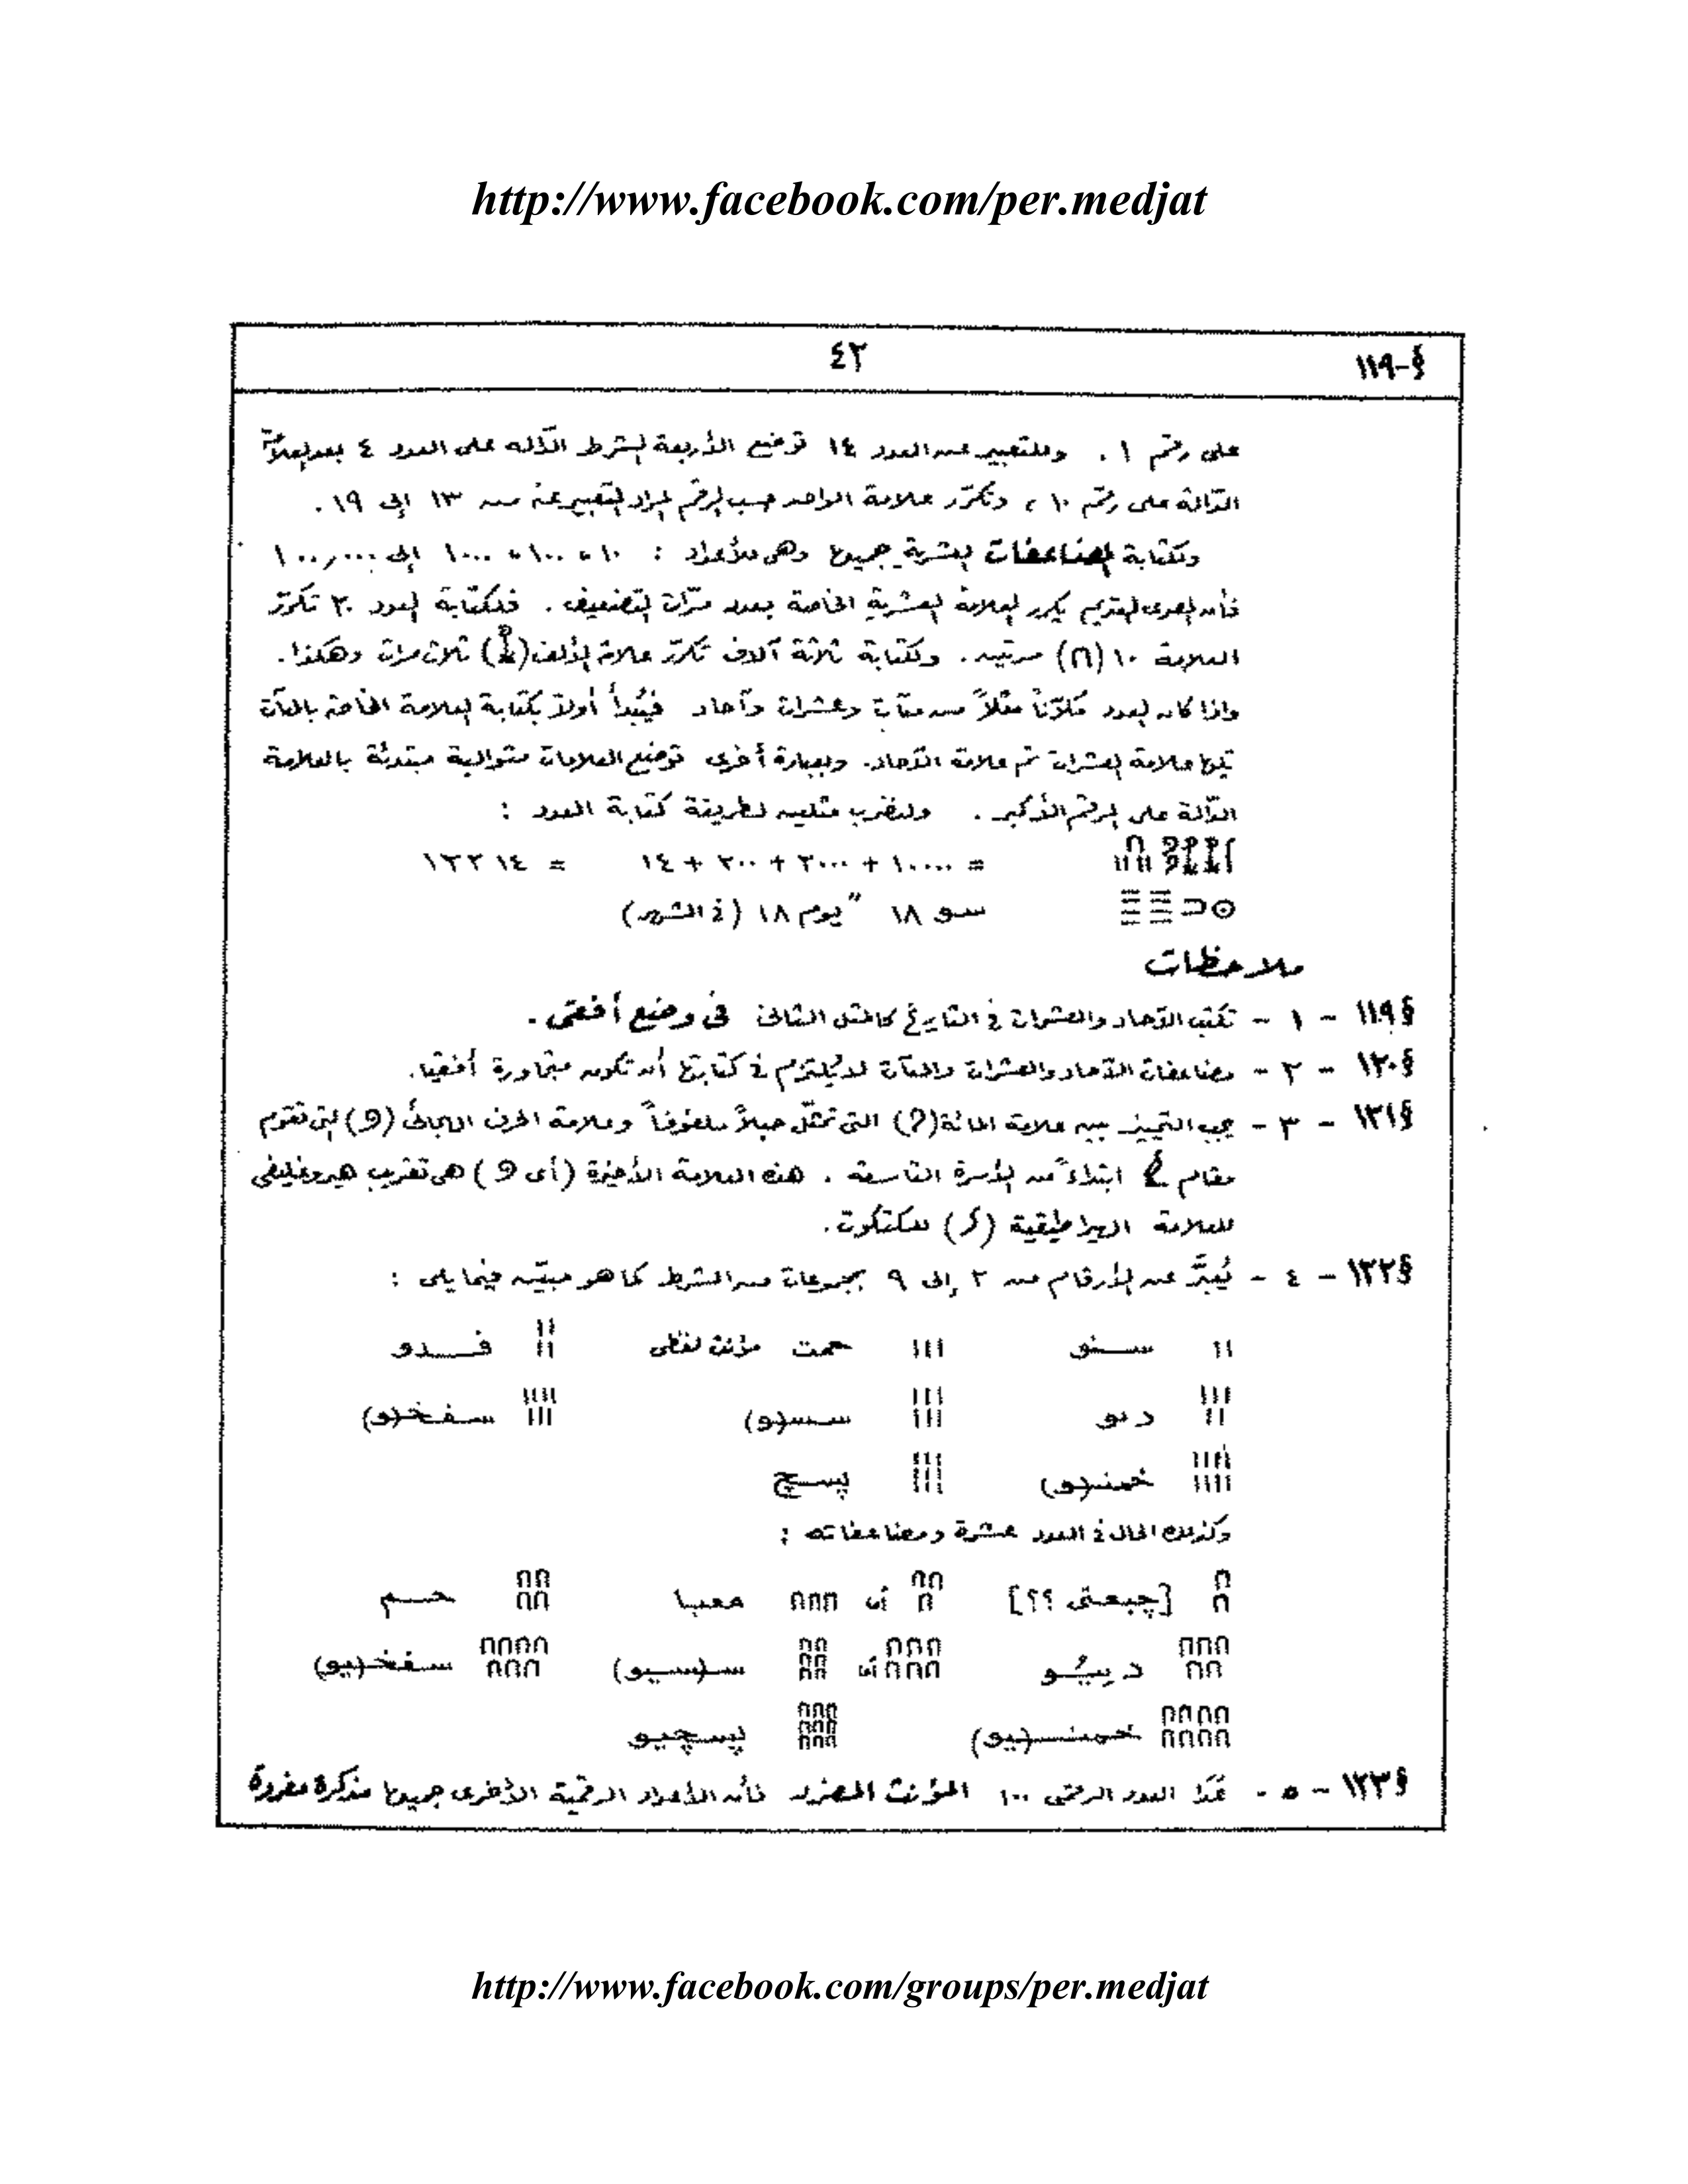 http://www.facebook.com/per.medjat
٤٢
§-١١٩
على رقم ١ . وللتعبير عن العدد ١٤ توضع الأربعة شرط الدّالة على العدد ٤ بعد العلامة
الدّالة على رقم ١٠ ، وتكرّر علامة الواحد حسب الرقم المراد التعبير عنه من ١٣ إلى ١٩ .
ولكتابة المضاعفات العشرية جميعها وهى للأعداد : ١٠ ، ١٠٠ ، ١٠٠٠ إلى
فأن المصرى القديم يكرر العلامة العشرية الخاصة بعدد مرّات التضعيف . فلكتابة العدد ٢٠ تكرّر
العلامة ١٠ (𓎆) مرتين . ولكتابة ثلاثة آلاف تكرّر علامة الألف (𓆼) ثلاث مرات وهكذا .
واذا كان العدد مكوّناً مثلاً من مئات وعشرات وآحاد فيُبدأ أولاً بكتابة العلامة الخاصة بالمئات
تليها علامة العشرات ثم علامة الآحاد . وبعبارة أخرى توضع العلامات متوالية مبتدئة بالعلامة
الدّالة على الرقم الأكبر . ولنضرب مثلين لطريقة كتابة العدد :
= ١٠٠٠٠ + ٢٠٠٠ + ٢٠٠ + ١٤ = ١٢٢١٤
سو ١٨ " يوم ١٨ (فى الشهر)
ملاحظات
§١١٩ - ١ - تكتب الآحاد والعشرات فى التاريخ كالمثل الثانى فى وضع أفقى .
§١٢٠ - ٢ - مضاعفات الآحاد والعشرات والمئات لا يُلتزم فى كتابتها أن تكون متجاورة أفقيا .
§١٢١ - ٣ - يجب التمييز بين علامة المائة (𓍢) التى تمثّل حبلاً ملفوفاً وعلامة الحرف الهجائى (𓏲) التى تقوم
مقام 𓅱 ابتداءً من الأسرة التاسعة . هذه العلامة الأخيرة (أى 𓏲) هى تقريب هيروغليفى
للعلامة الهيراطيقية للكتكوت .
§١٢٢ - ٤ - يُعبَّر عن الأرقام من ٢ إلى ٩ بمجموعات من الشرط كما هو مبيّن فيما يلى :
𓏻 سنو 𓏼 خمت مؤنث لفظى 𓏽 فدو
𓏾 ديو 𓏿 سس(و) 𓐀 سفخ(و)
𓐁 خمنـ(و) 𓐂 پسچ
وكذلك الحال فى العدد عشرة ومضاعفاته :
[چبعتى ؟؟] أى معبا حـم
دييُو أى سـ(سيو) سفخـ(يو)
خمنـ(يو) پسچيو
§١٢٣ - ٥ - عدا العدد الرقمى ١٠٠ المؤنث المفرد فأن الأعداد الرقمية الأخرى جميعها مذكرة مفردة
http://www.facebook.com/groups/per.medjat